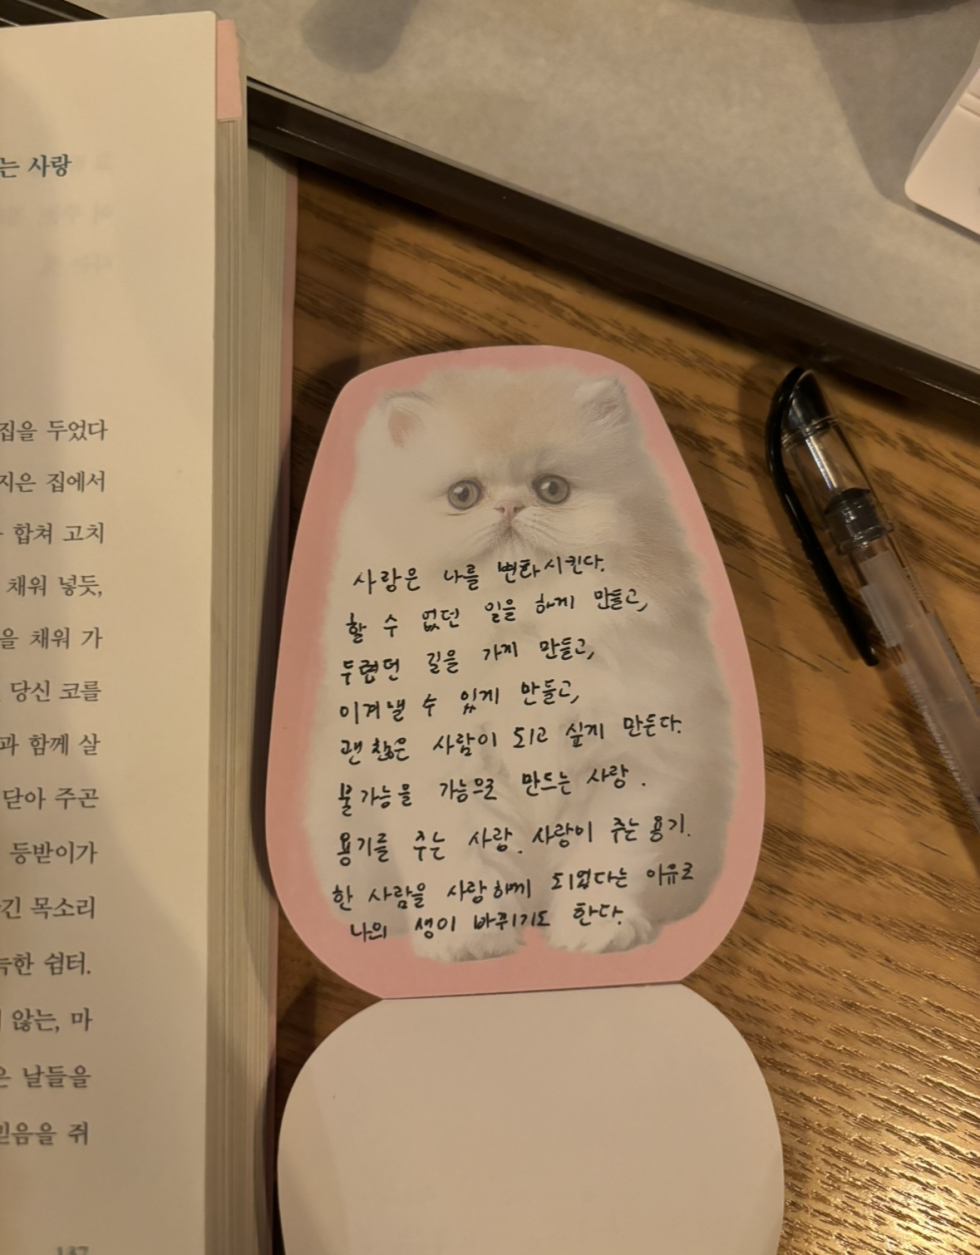 는 사랑
집을 두었다
지은 집에서
합쳐 고치
채워 넣듯,
을 채워 가
당신 코를
과 함께 살
닫아 주곤
등받이가
긴 목소리
늑한 쉼터.
않는, 마
은 날들을
믿음을 쥐
137
사랑은 나를 변화시킨다.
할 수 없던 일을 하게 만들고,
두렵던 길을 가게 만들고,
이겨낼 수 있게 만들고,
괜찮은 사람이 되고 싶게 만든다.
불가능을 가능으로 만드는 사랑.
용기를 주는 사랑. 사랑이 주는 용기.
한 사람을 사랑하게 되었다는 이유로
나의 생이 바뀌기도 한다.